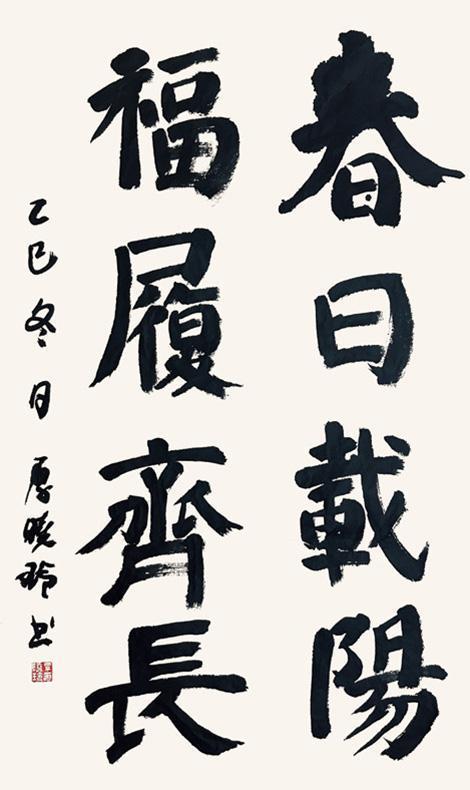 春日載陽
福履齊長
乙巳冬日 厲曉玲書